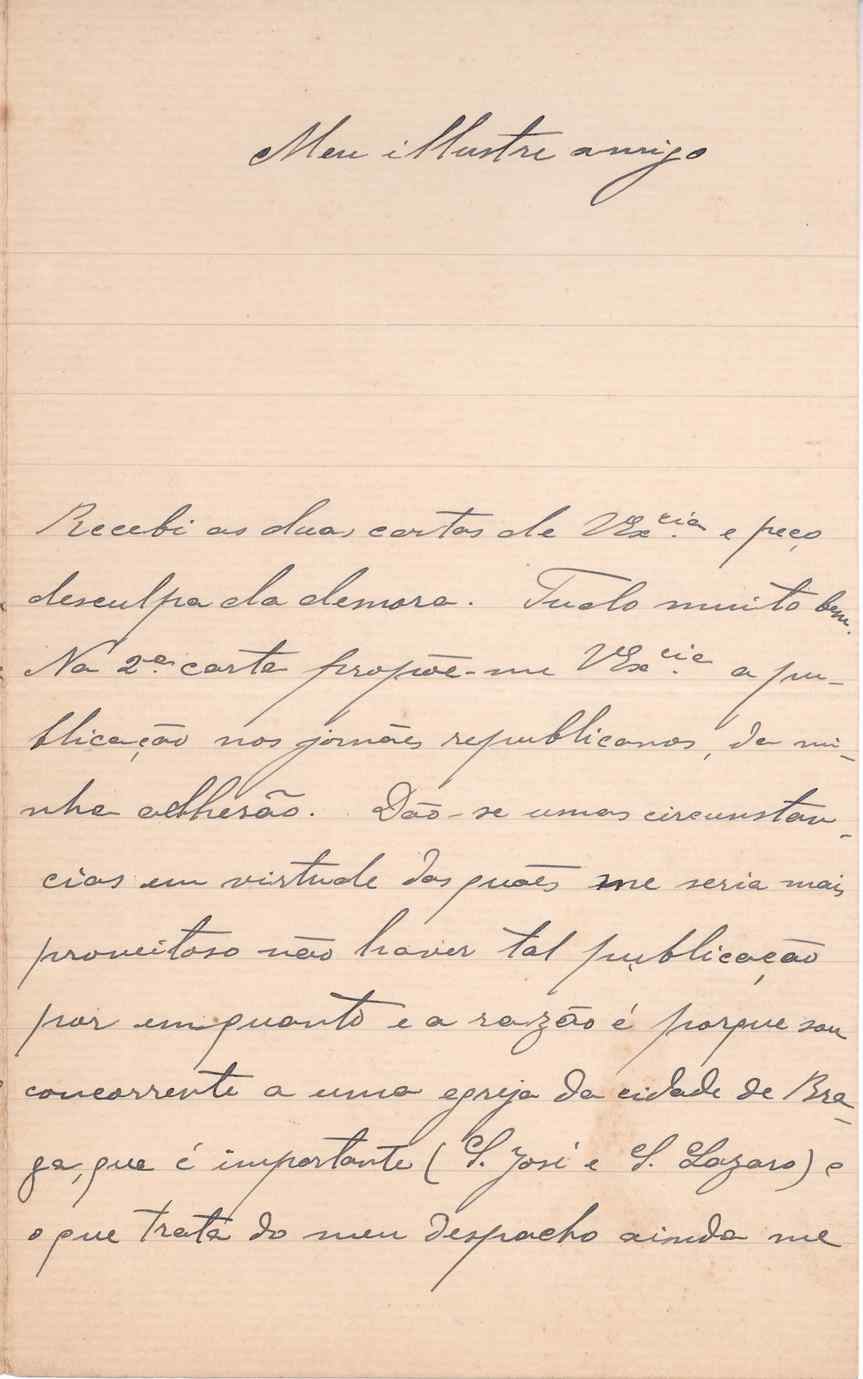 Meu illustre amigo
Recebi as duas cartas de VEx.cia e peço
desculpa da demora. Tudo muito bem.
Na 2ª carta propõe-me VEx.cia a pu-
blicação nos jornães republicanos, da mi-
nha adhesão. Dão-se umas circunstan-
cias em virtude das quães me seria mais
proveitoso não haver tal publicação
por emquanto e a razão é porque sou
concorrente a uma egreja da cidade de Bra-
ga, que é importante (S. José e S. Lazaro) e
o que trata do meu despacho ainda me